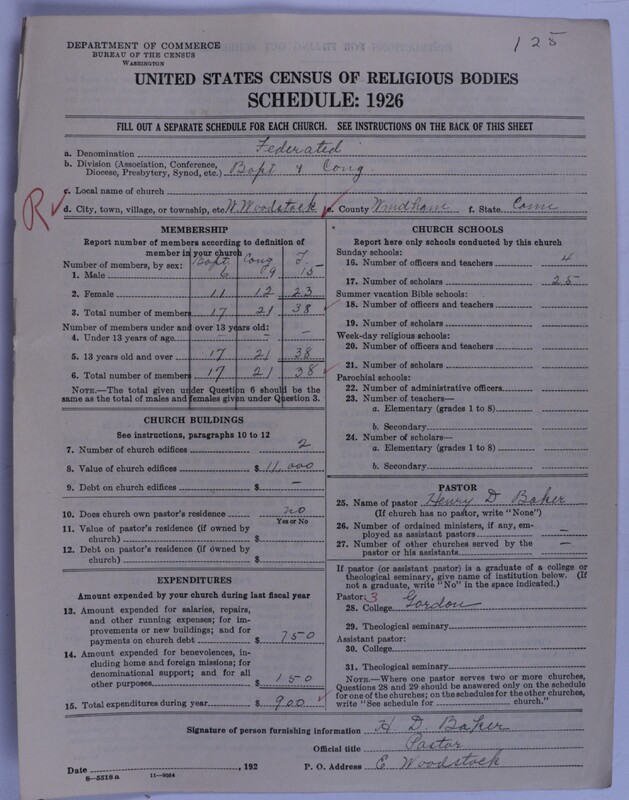 125
DEPARTMENT OF COMMERCE
BUREAU OF THE CENSUS
WASHINGTON
UNITED STATES CENSUS OF RELIGIOUS BODIES
SCHEDULE: 1926
FILL OUT A SEPARATE SCHEDULE FOR EACH CHURCH. SEE INSTRUCTIONS ON THE BACK OF THIS SHEET
a. Denomination Federated
b. Division (Association, Conference, Diocese, Presbytery, Synod, etc.) Bapt & Cong
c. Local name of church
R
d. City, town, village, or township, etc W. Woodstock e. County Windham f. State Conn
MEMBERSHIP
Report number of members according to definition of
member in your church
Number of members, by sex: Bapt Cong T.
1. Male 6 9 15
2. Female 11 12 23
3. Total number of members 17 21 38
Number of members under and over 13 years old:
4. Under 13 years of age — — —
5. 13 years old and over 17 21 38
6. Total number of members 17 21 38
NOTE.—The total given under Question 6 should be the
same as the total of males and females given under Question 3.
CHURCH BUILDINGS
See instructions, paragraphs 10 to 12
7. Number of church edifices 2
8. Value of church edifices $ 11,000
9. Debt on church edifices $ —
10. Does church own pastor's residence? no
Yes or No
11. Value of pastor's residence (if owned by
church) $
12. Debt on pastor's residence (if owned by
church) $
EXPENDITURES
Amount expended by your church during last fiscal year
13. Amount expended for salaries, repairs,
and other running expenses; for im-
provements or new buildings; and for
payments on church debt $ 750
14. Amount expended for benevolences, in-
cluding home and foreign missions; for
denominational support; and for all
other purposes $ 150
15. Total expenditures during year $ 900
CHURCH SCHOOLS
Report here only schools conducted by this church
Sunday schools:
16. Number of officers and teachers 4
17. Number of scholars 25
Summer vacation Bible schools:
18. Number of officers and teachers
19. Number of scholars
Week-day religious schools:
20. Number of officers and teachers
21. Number of scholars
Parochial schools:
22. Number of administrative officers
23. Number of teachers—
a. Elementary (grades 1 to 8)
b. Secondary
24. Number of scholars—
a. Elementary (grades 1 to 8)
b. Secondary
PASTOR
25. Name of pastor Henry D Baker
(If church has no pastor, write "None")
26. Number of ordained ministers, if any, em-
ployed as assistant pastors —
27. Number of other churches served by the
pastor or his assistants —
If pastor (or assistant pastor) is a graduate of a college or
theological seminary, give name of institution below. (If
not a graduate, write "No" in the space indicated.)
Pastor: 3
28. College Gordon
29. Theological seminary
Assistant pastor:
30. College
31. Theological seminary
NOTE.—Where one pastor serves two or more churches,
Questions 28 and 29 should be answered only on the schedule
for one of the churches; on the schedules for the other churches,
write "See schedule for church."
Signature of person furnishing information H D. Baker
Official title Pastor
Date , 192 P. O. Address E Woodstock
8—5518 a 11—9024